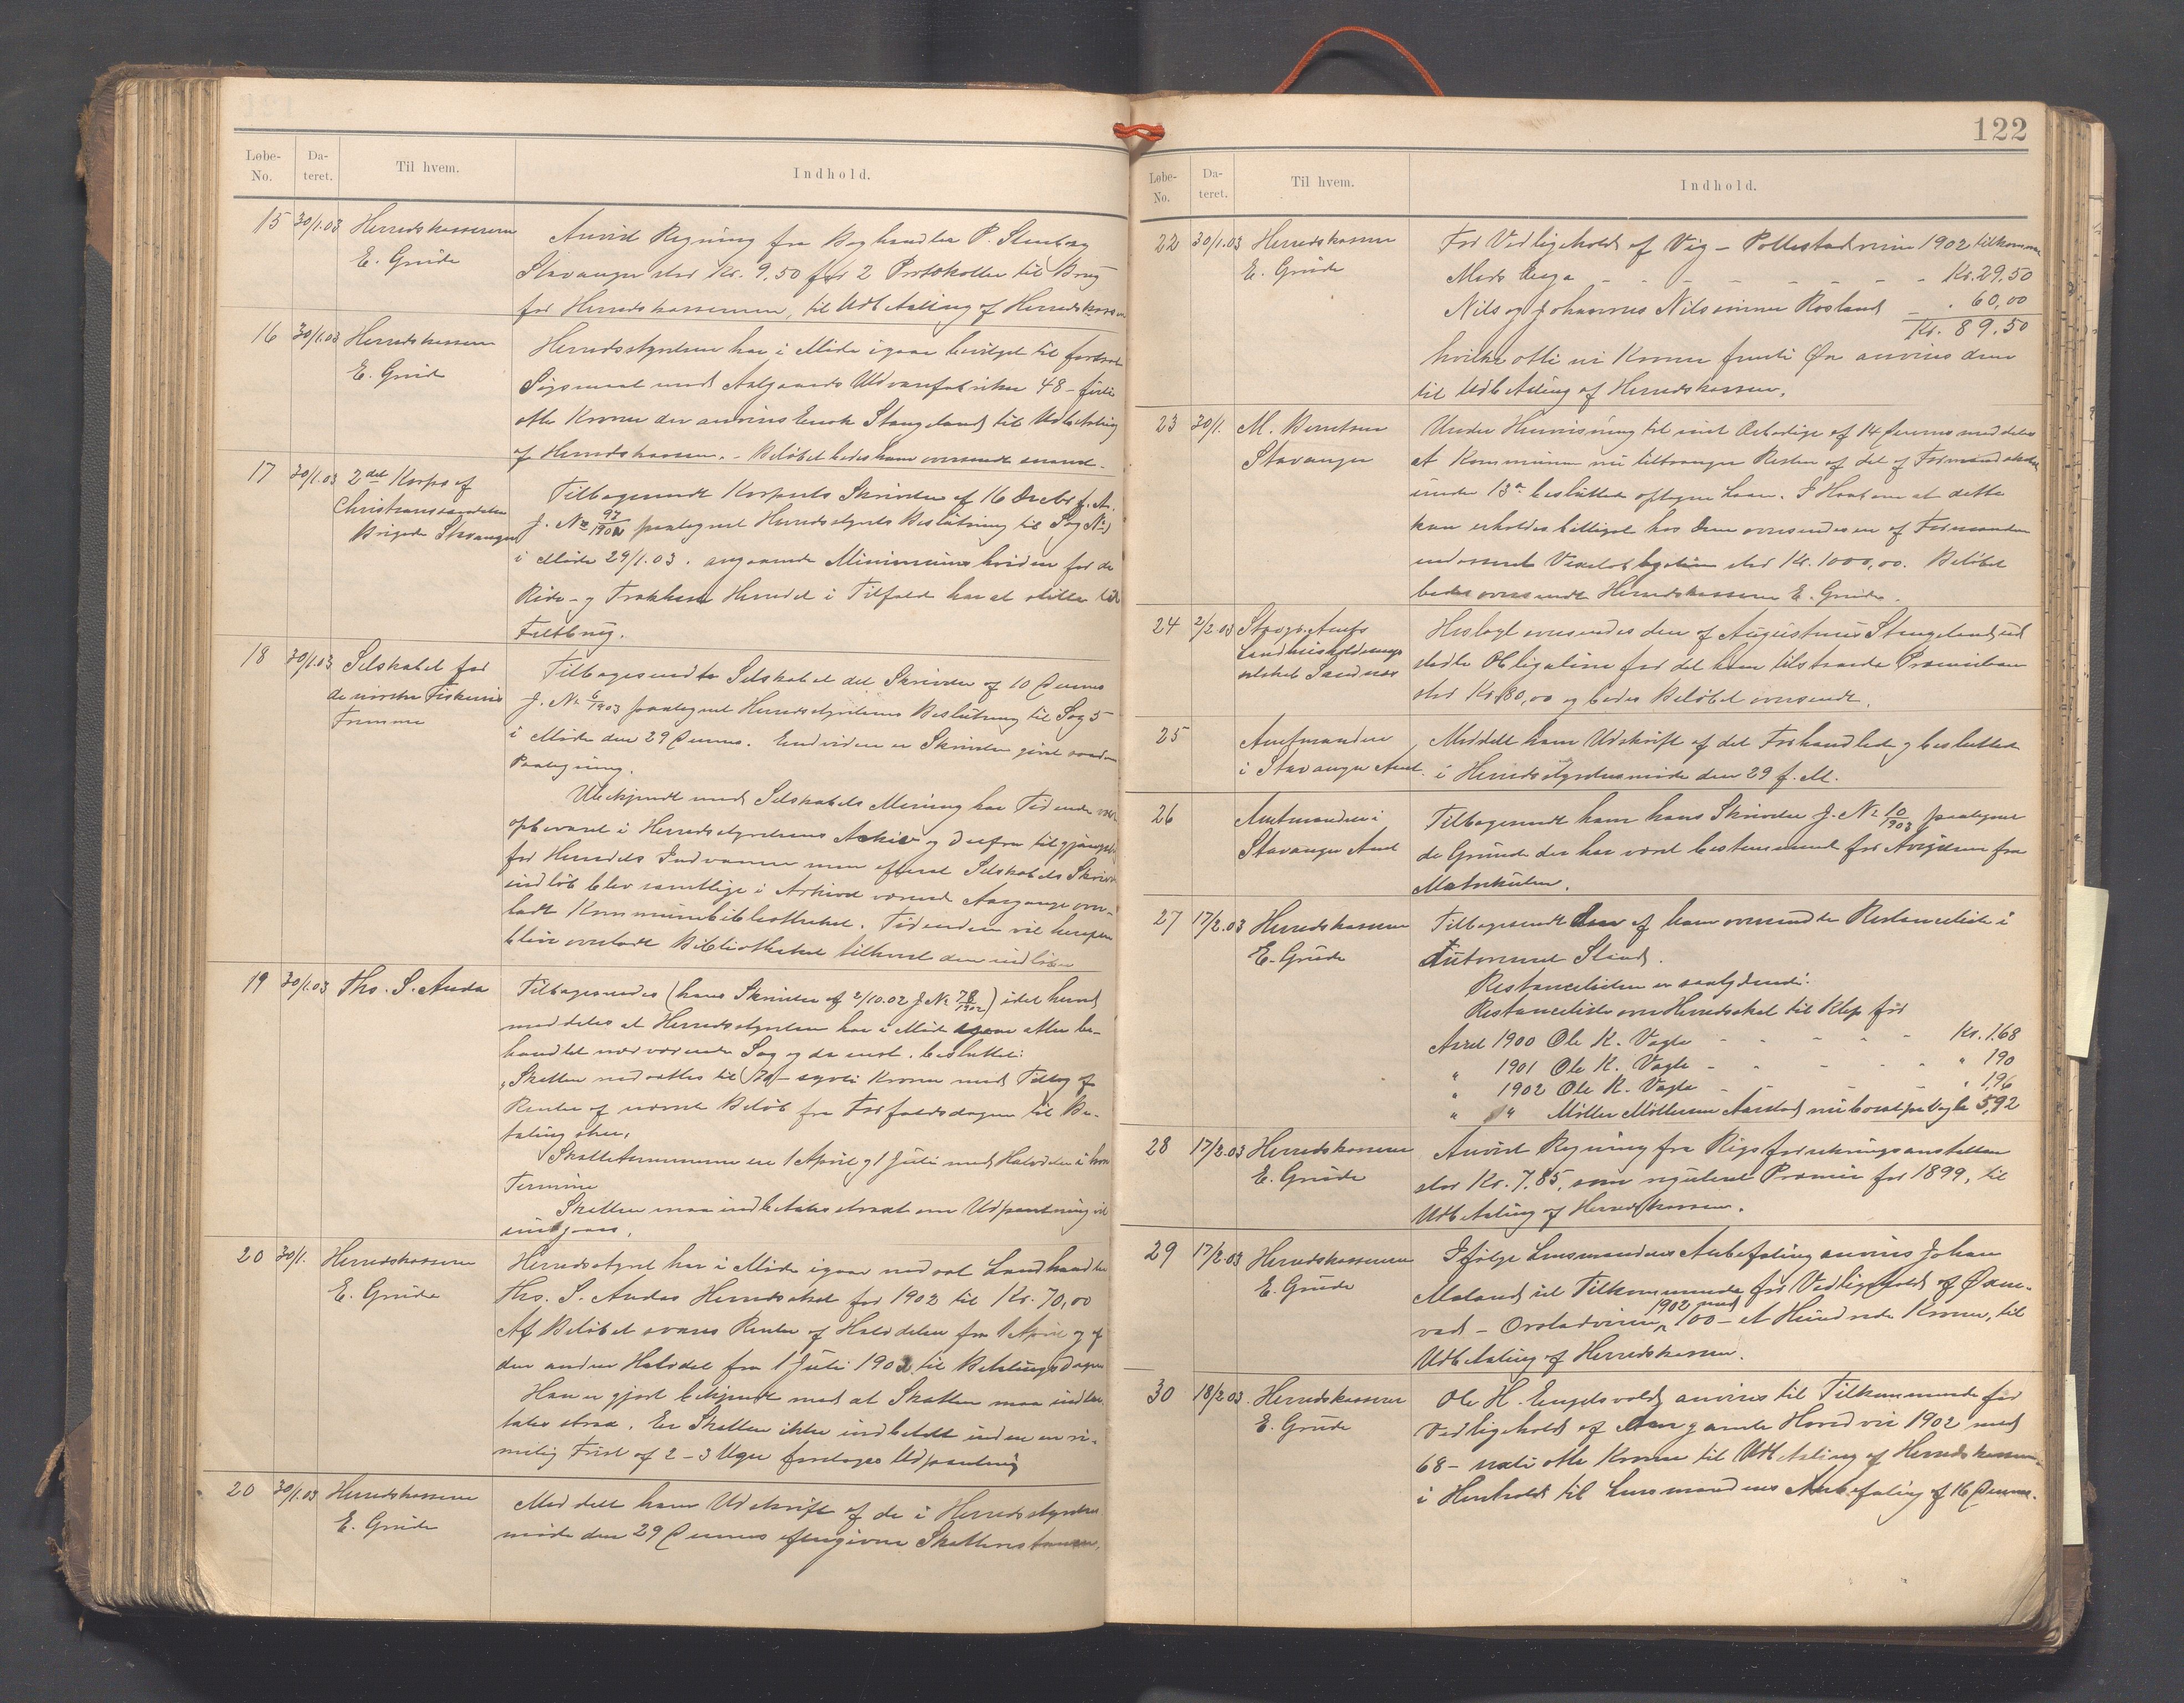 Løbe-No. Dateret. Til hvem. Indhold.
15 30/1.03 Herredskassereren E. Grude
Anvist Regning fra Boghandler P. Stenborg
Stavanger stor Kr. 9,50 for 2 Protokoller til Brug
for Herredskassereren, til Udbetaling af Herredskassen
16 30/1.03 Herredskasserer E. Grude
Herredsstyrelsen har i Møde igaar bevilget til fortsat
Søgsmaal mod Aalgaards Uldvarefabriker 48 – førti
otte Kroner der anvises Enok Stangeland til Udbetaling
af Herredskassen. – Beløbet bedes ham oversendt snarest.
17 30/1.03 2det Korps af Christianssandske Brigade Stavanger
Tilbagesendt Korpsets Skrivelse af 16 Decbr f. A.
J. No 97/1902 paategnet Herredsstyrets Beslutning til Sag No
i Møde 29/1.03. angaaende Minimumshøiden for de
Ride- og Trækheste Herredet i Tilfælde har at stille til
Feltbrug.
18 30/1.03 Selskabet for de norske Fiskeriers Fremme
Tilbagesendte Selskabet det Skrivelse af 10 Dennes
J. No 6/1903 paategnet Herredsstyrelsens Beslutning til Sag 5
i Møde den 29 Dennes. Endvidere er Skrivelsen givet saadan
Paategning.
Ubekjendt med Selskabets Mening har Tidende været
opbevaret i Herredsstyrelsens Arkiv og derfra tilgjængelig
for Herredets Indvaanere men efterat Selskabets Skrivelse
indløb blev samtlige i Arkivet værende Aargange over-
ladt Kommunebibliotheket. Tidenden vil herefter
blive overladt Bibliotheket tilhvert den indløber
19 30/1.03 Ths. S. Anda
Tilbagesendes (hans Skrivelse af 2/10.02 J No 78/1902) idet herved
meddeles at Herredsstyrelsen har i Møde igaar atter be-
handlet nærværende Sag og da enst. besluttet:
"Skatten nedsættes til 70 – sytti Kroner med Tillæg af
Renter af nævnte Beløb fra Forfaldsdagen til Be-
taling sker.
Skatteterminerne er 1 April og 1 Juli med Halvdelen i hver
Termin
Skatten maa indbetales straks om Udpantning vil
undgaaes.
20 30/1. Herredskasserer E. Grude
Herredsstyret har i Møde igaar nedsat Landhandler
Ths. S. Andas Herredsskat for 1902 til Kr. 70,00
Af Beløbet svares Renter af Halvdelen fra 1 April og af
den anden Halvdel fra 1 Juli 1902 til Betalingsdagen
Han er gjort bekjendt med at Skatten maa indbe-
tales strax. Er Skatten ikke indbetalt inden en ri-
melig Frist af 2 – 3 Uger foretages Udpantning
20 30/1.03 Herredskasserer E. Grude
Meddelt ham Udskrift af de i Herredsstyrelses
møde den 29 Dennes eftergivne Skatterestancer.
122
Løbe-No. Dateret. Til hvem. Indhold.
22 30/1.03 Herredskasserer E. Grude
For Vedligehold af Vig – Pollestadveien 1902 tilkommer
Mads Euga - - - - - - - Kr. 29,50
Nils og Johannes Nilsønner Rosland - 60,00
Kr. 89,50
hvilke otti ni Kroner femti Øre anvises dem
til Udbetaling af Herredskassen.
23 30/1. M. Berntsen Stavanger
Under Henvisning til mit Ærbødige af 14 Dennes meddeles
at Kommunen nu tiltrænger Resten af det af Formandskabet
under 13de besluttet optagne Laan. I Haab om at dette
kan erholdes billigst hos Dem oversendes en af Formanden
endosseret Vexelobligation stor Kr. 1000,00. Beløbet
bedes oversendt Herredskasserer E. Grude.
24 2/2.03 Stavgr. Amts Landhusholdningsselskab Sandnæs
Hoslagt oversendes den af Augustinus Stangeland ud
stedte Obligation for det ham tilstaaede Præmielaan
stor Kr. 180,00 og bedes Beløbet oversendt.
25 Amtmanden i Stavanger Amt.
Meddelt ham Udskrift af det Forhandlede og besluttede
i Herredsstyrelsesmøde den 29 f. M.
26 Amtmanden i Stavanger Amt
Tilbagesendt ham hans Skrivelse J. No 10/1903 paategnet
de Grunde der har været bestemmende for Avgivelsen fra
Matrikulen.
27 17/2.03 Herredskasserer E. Grude
Tilbagesendt den af ham oversendte Restanceliste i
autoriseret Stand.
Restancelisten er saalydende:
Restanceliste over Herredsskat til Klep for
Aaret 1900 Ole K. Vagle - - - - - Kr. 1,68
" 1901 Ole K. Vagle - - - - - " 1,90
" 1902 Ole K. Vagle - - - - - " 1,96
" " Møller Møllersen Aarstad nu bosat paa Vagle 5,92
28 17/2.03 Herredskasserer E. Grude
Anvist Regning fra Rigsforsikringsanstalten
stor Kr. 7,85, som reguleret Præmie for 1899, til
Udbetaling af Herredskassen.
29 17/2.03 Herredskassereren E. Grude
Ifølge Lensmandens Anbefaling anvises Johan
Meland sit Tilkommende for Vedligehold af Øxne-
vad – Orstadveien 1902 med 100 – et Hundrede Kroner, til
Udbetaling af Herredskassen.
30 18/2.03 Herredskasserer E. Grude
Ole H. Engelsvold anvises til Tilkommende for
Vedligehold af den gamle Hovedvei 1902 med
68 – sexti otte Kroner til Udbetaling af Herredskassen.
i Henhold til Lensmandens Anbefaling af 16 Dennes.